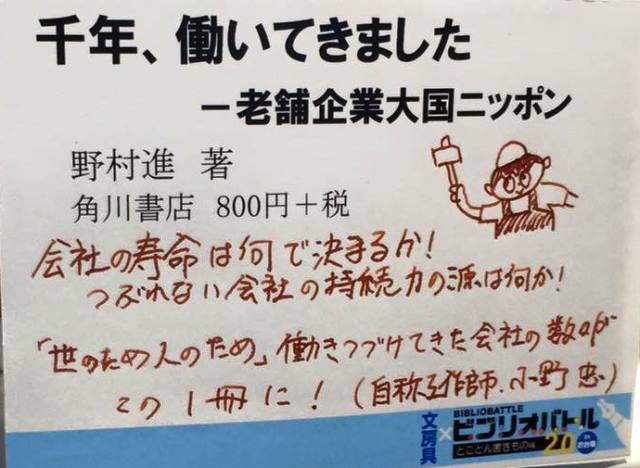 千年、働いてきました
－老舗企業大国ニッポン
野村進 著
角川書店 800円＋税
会社の寿命は何で決まるか!
つぶれない会社の持続力の源は何か!
「世のため人のため」働きつづけてきた会社の数々が
この1冊に! (自称工作師、小野 忠)
文房具
×
BIBLIOBATTLE
ビブリオバトル
とことん書きもの編
2.0
in
お台場